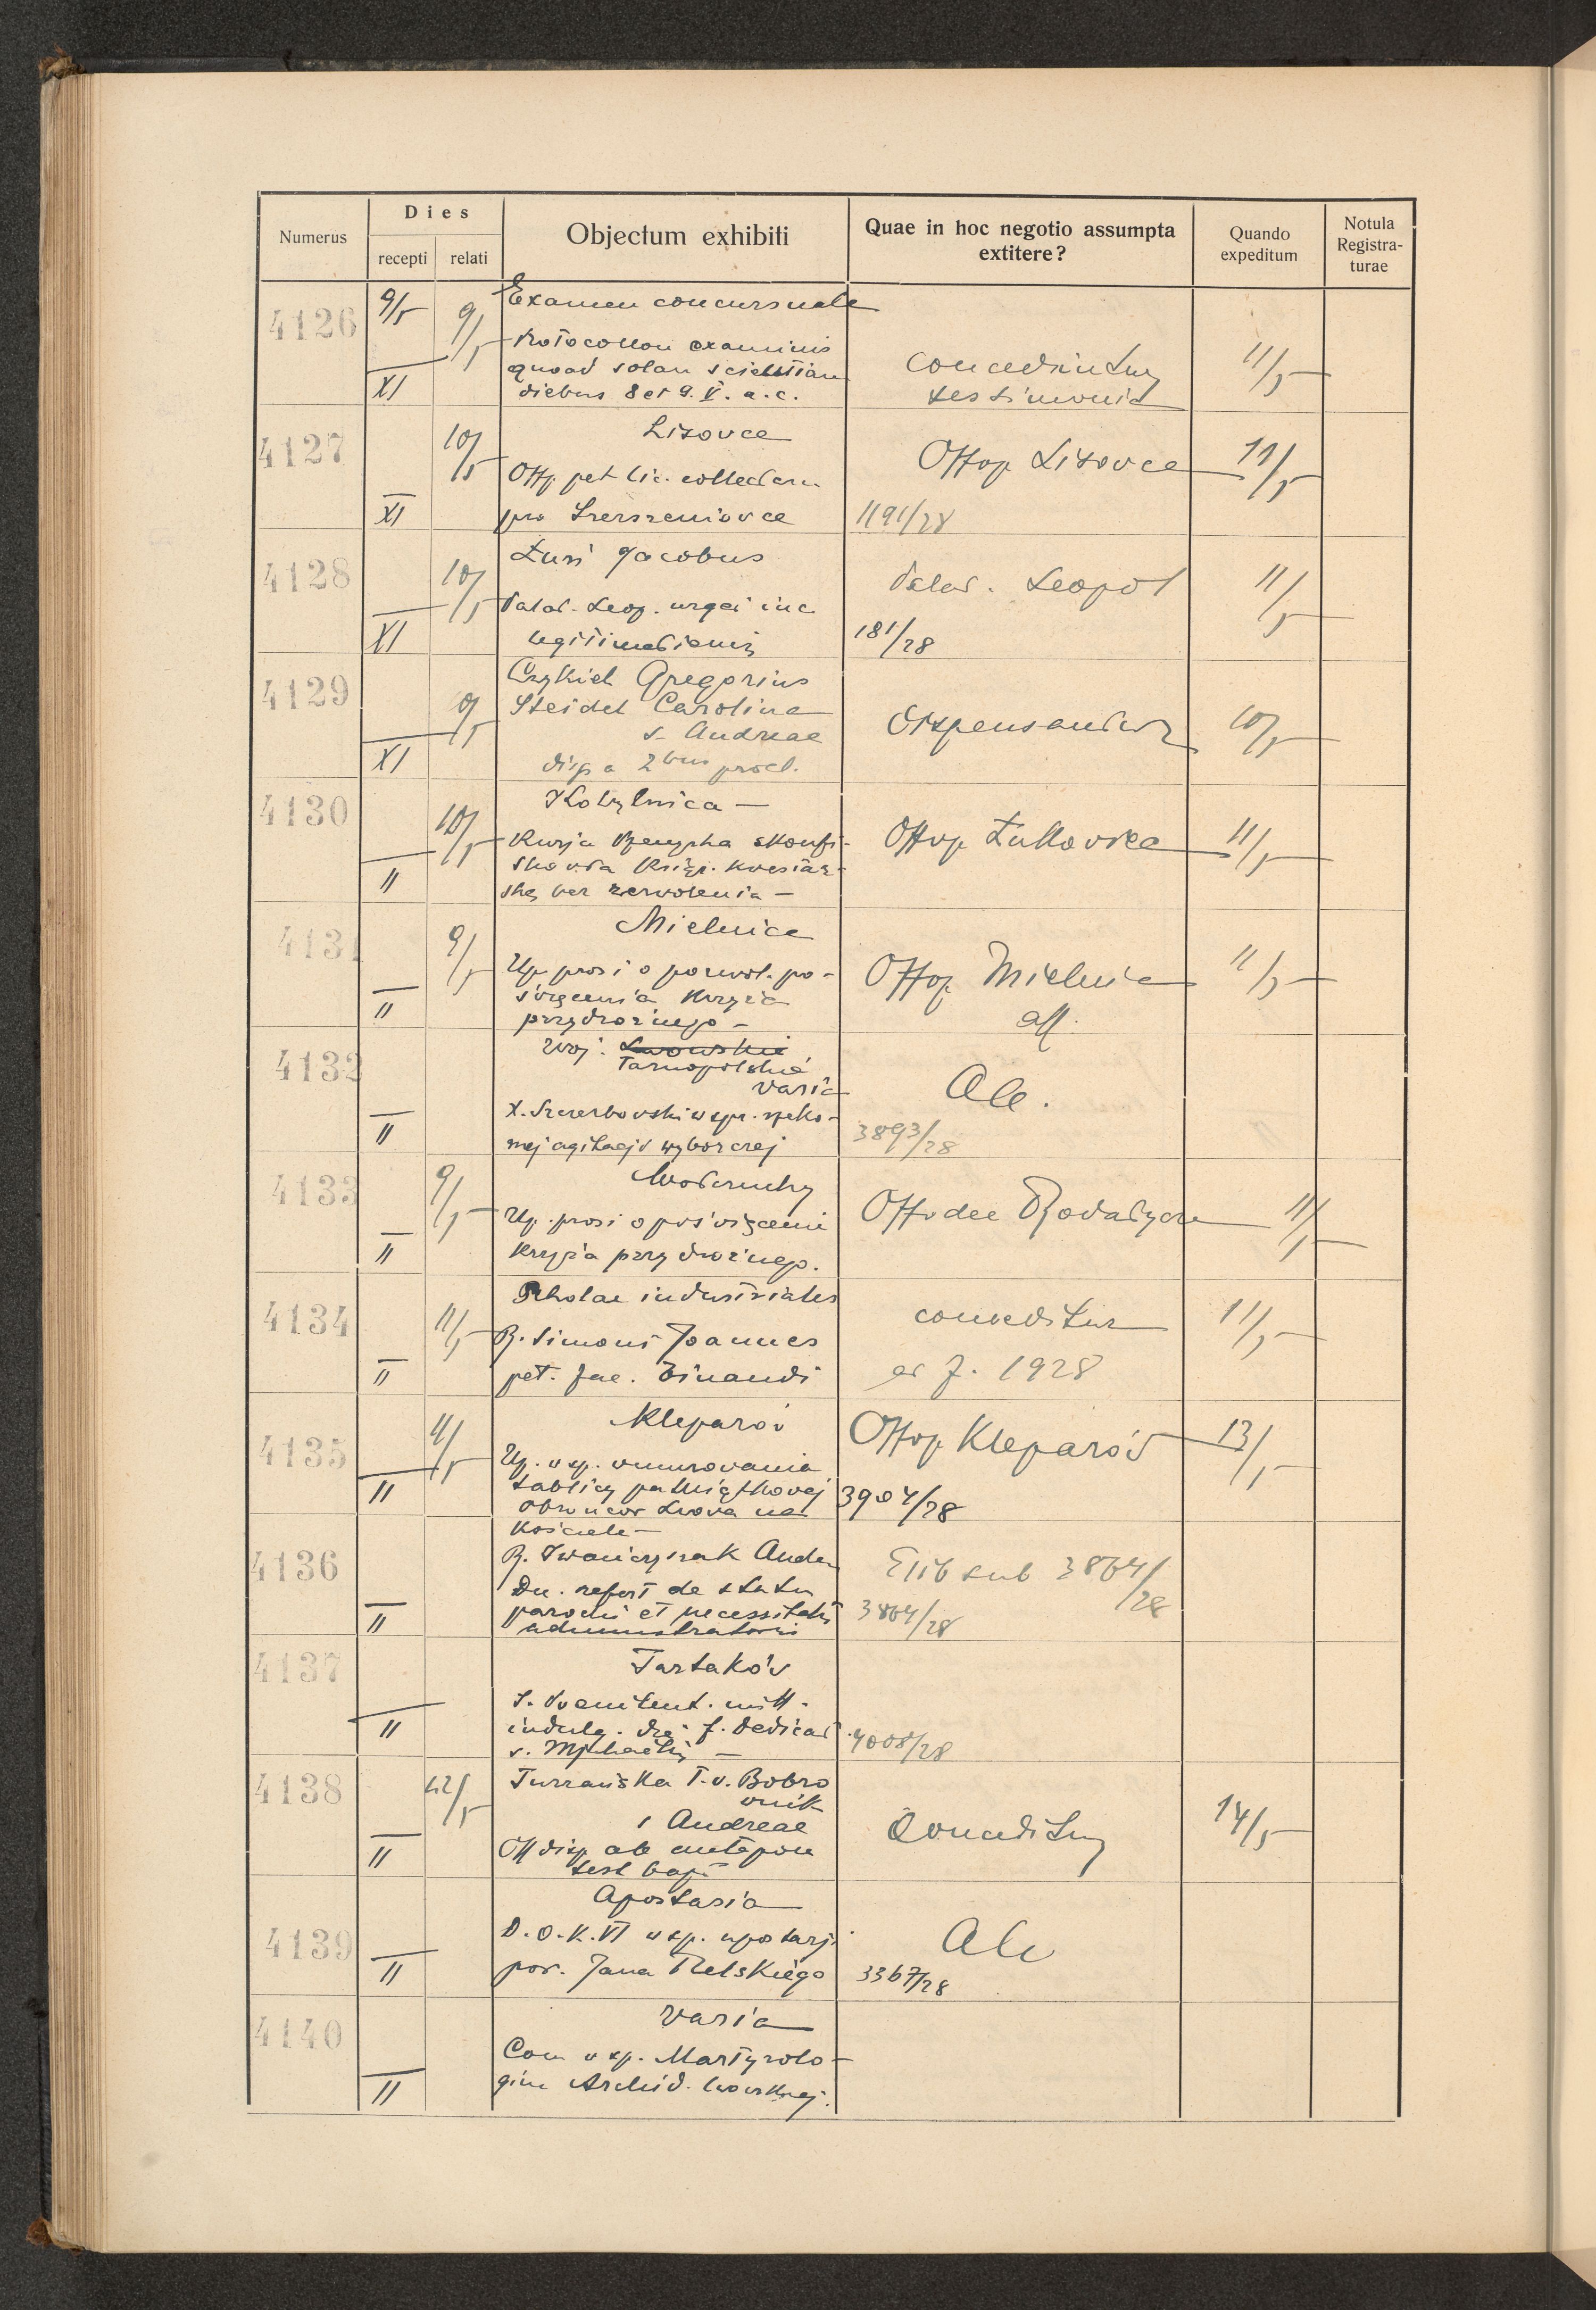 Numerus
Dies
recepti
relati
Objectum exhibiti
Quae in hoc negotio assumpta
extitere?
Quando
expeditum
Notula
Registra-
turae
4126
9/5
XI
9/5
Examen concursuale
Protocollon examinis
quoad solam scientiam
diebus 8 et 9. V. a. c.
conceduntur
testimonia
11/5
4127
XI
10/5
Lisovce
Offop pet lic. collectam
pro Szerszeniovce
Offop Lisovce
1191/28
11/5
4128
XI
10/5
Jacobus
Palat. Leop. urget
legitimationis
Palat. Leopol
181/28
11/5
4129
XI
9/5
Gregorius
Steidel Carolina
s. Andreae
disp a 2bus procl.
Dispensantur
10/5
4130
II
10/5
Kobylnica —
Kurja
bez zezwolenia —
Offop
11/5
4131
II
9/5
Mielnica
Up. prosi o pozwol. po-
święcenia krzyża
przydrożnego —
Offop Mielnica
11/5
4132
II
woj. Lwowskie
Tarnopolskie
varia
X. Szczerbowski w spr. rzeko-
mej agitacji wyborczej
Ale.
3893/28
4133
II
9/5
Up. prosi o poświęcenie
krzyża przydrożnego.
11/5
4134
II
11/5
Scholae industriales
R. Simoni Joannes
pet. fac. binandi
conceditur
ad f. 1928
11/5
4135
II
11/5
Kleparów
Up. w sp. wmurowania
tablicy pamiątkowej
obrońców Lwowa na
kościele —
Offop Kleparów
3904/28
13/5
4136
II
Dec. refert de statu
parochi et necessitatis
administratoris
Exib sub 3864/28
3864/28
4137
II
Tartaków
S. Poenitent. mitt.
indulg. f. Dedicat
s. Michaelis —
4008/28
4138
II
12/5
T. v. Bobro
wnik
s Andreae
Off disp ab
test bapt
Conceditur
14/5
4139
II
Apostasia
D. O. K. VI w sp. apostazji
por. Jana Relskiego
Ale
3367/28
4140
II
varia
Com w sp. Martyrolo-
gium Archid. lwowskiej.